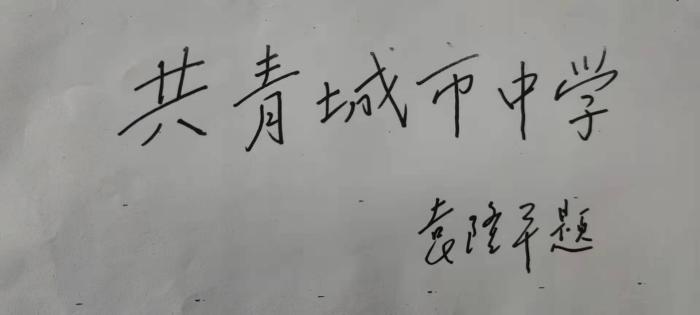 共青城市中学
袁隆平题